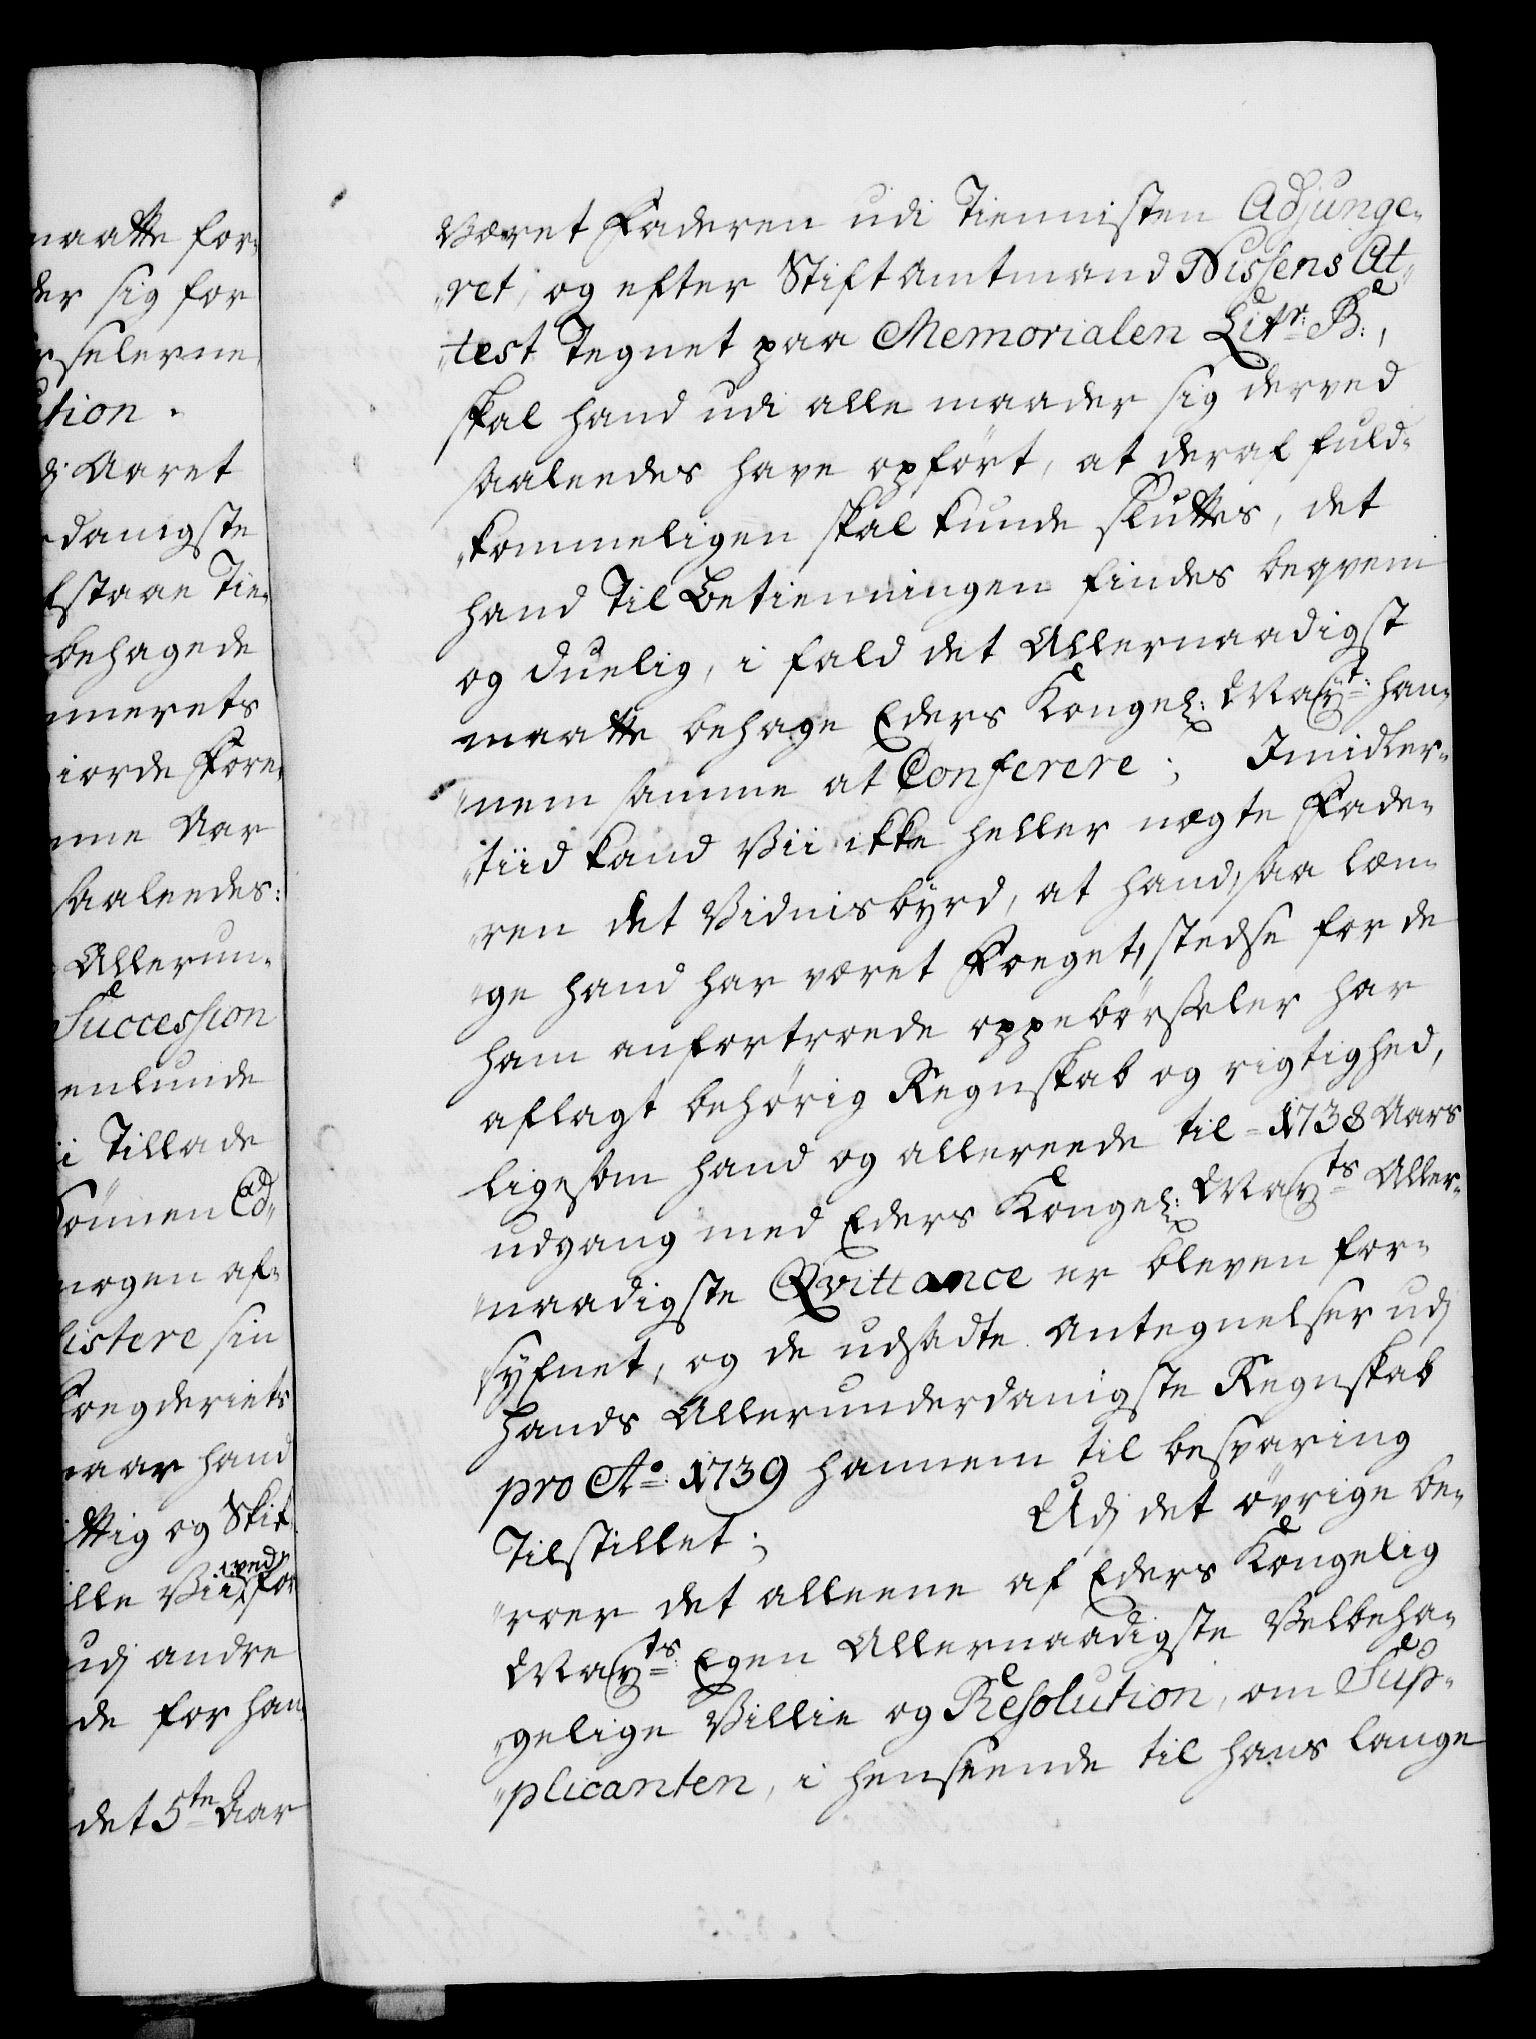 maatte for-
der sig for
selerne
ution.
dj Aaret
danigste
staae Tie-
behagede
merets
iorde Fore-
nne Aar
saaleedes:
Allerun-
Succession
enlunde
ii Tillade
Sønnen Ad-
nogen af-
istere sin
Foegderiets
naar hand
ttig og Skik-
ille Vii ved for
udj andre
de for han
det 5te Aar
Været Faderen udi Tiennisten Adjunge-
ret, og efter Stift Amtmand Nissens At-
test Tegnet paa Memorialen Litr: B:,
skal hand udi alle maader sig derved
saaleedes have opført, at deraf fuld-
kommeligen skal kunde sluttes, det
hand Til Betienningen findes beqvem
og duelig, i fald det Allernaadigst
maatte behage Eders Kongel: Mayt: han-
nem samme at Conferere; Imidler-
tiid kand Vii ikke heller nægte Fade-
ren det Vidnisbyrd, at hand, saa læn-
ge hand har været Foeget, stedse for de
ham anfortroede oppebørseler har
aflagt behørig Regnskab og rigtighed,
ligesom hand og allereede til 1738 Aars
udgang med Eders Kongel: Mayts Aller-
naadigste Qvittance er bleven for-
syfnet, og de udsadte Antegnelser udj
hands Allerunderdanigste Regnskab
pro Ao: 1739 hannem til besvaring
Tilstillet; Udj det øvrige be-
roer det alleene af Eders Kongelig
Mayts: Egen Allernaadigste Velbeha-
gelige Villie og Resolution, om Sup-
plicanten, i henseende til hans lange